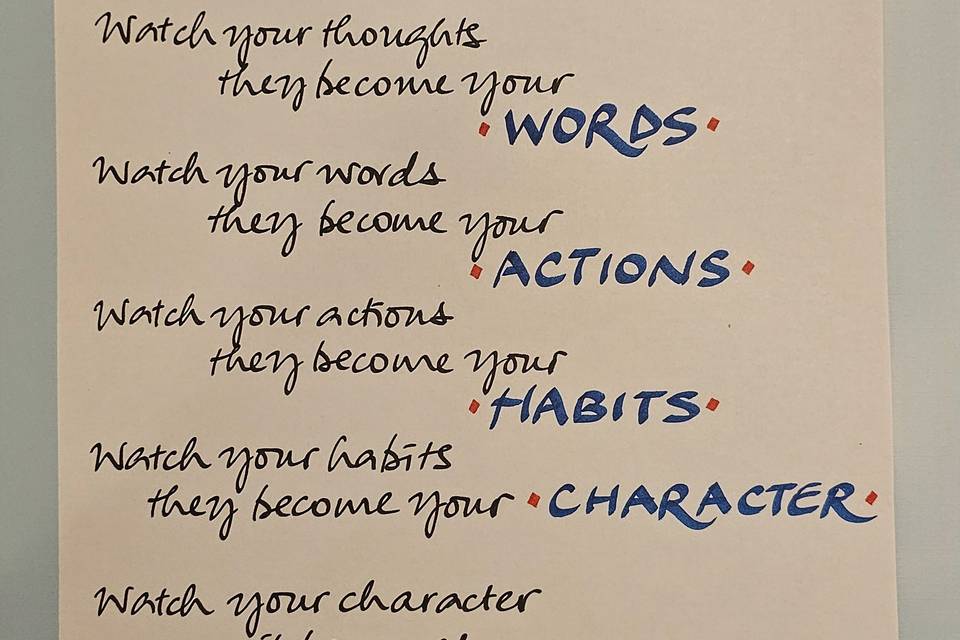 Watch your thoughts
they become your
WORDS
Watch your words
they become your
ACTIONS
Watch your actions
they become your
HABITS
Watch your habits
they become your CHARACTER
Watch your character